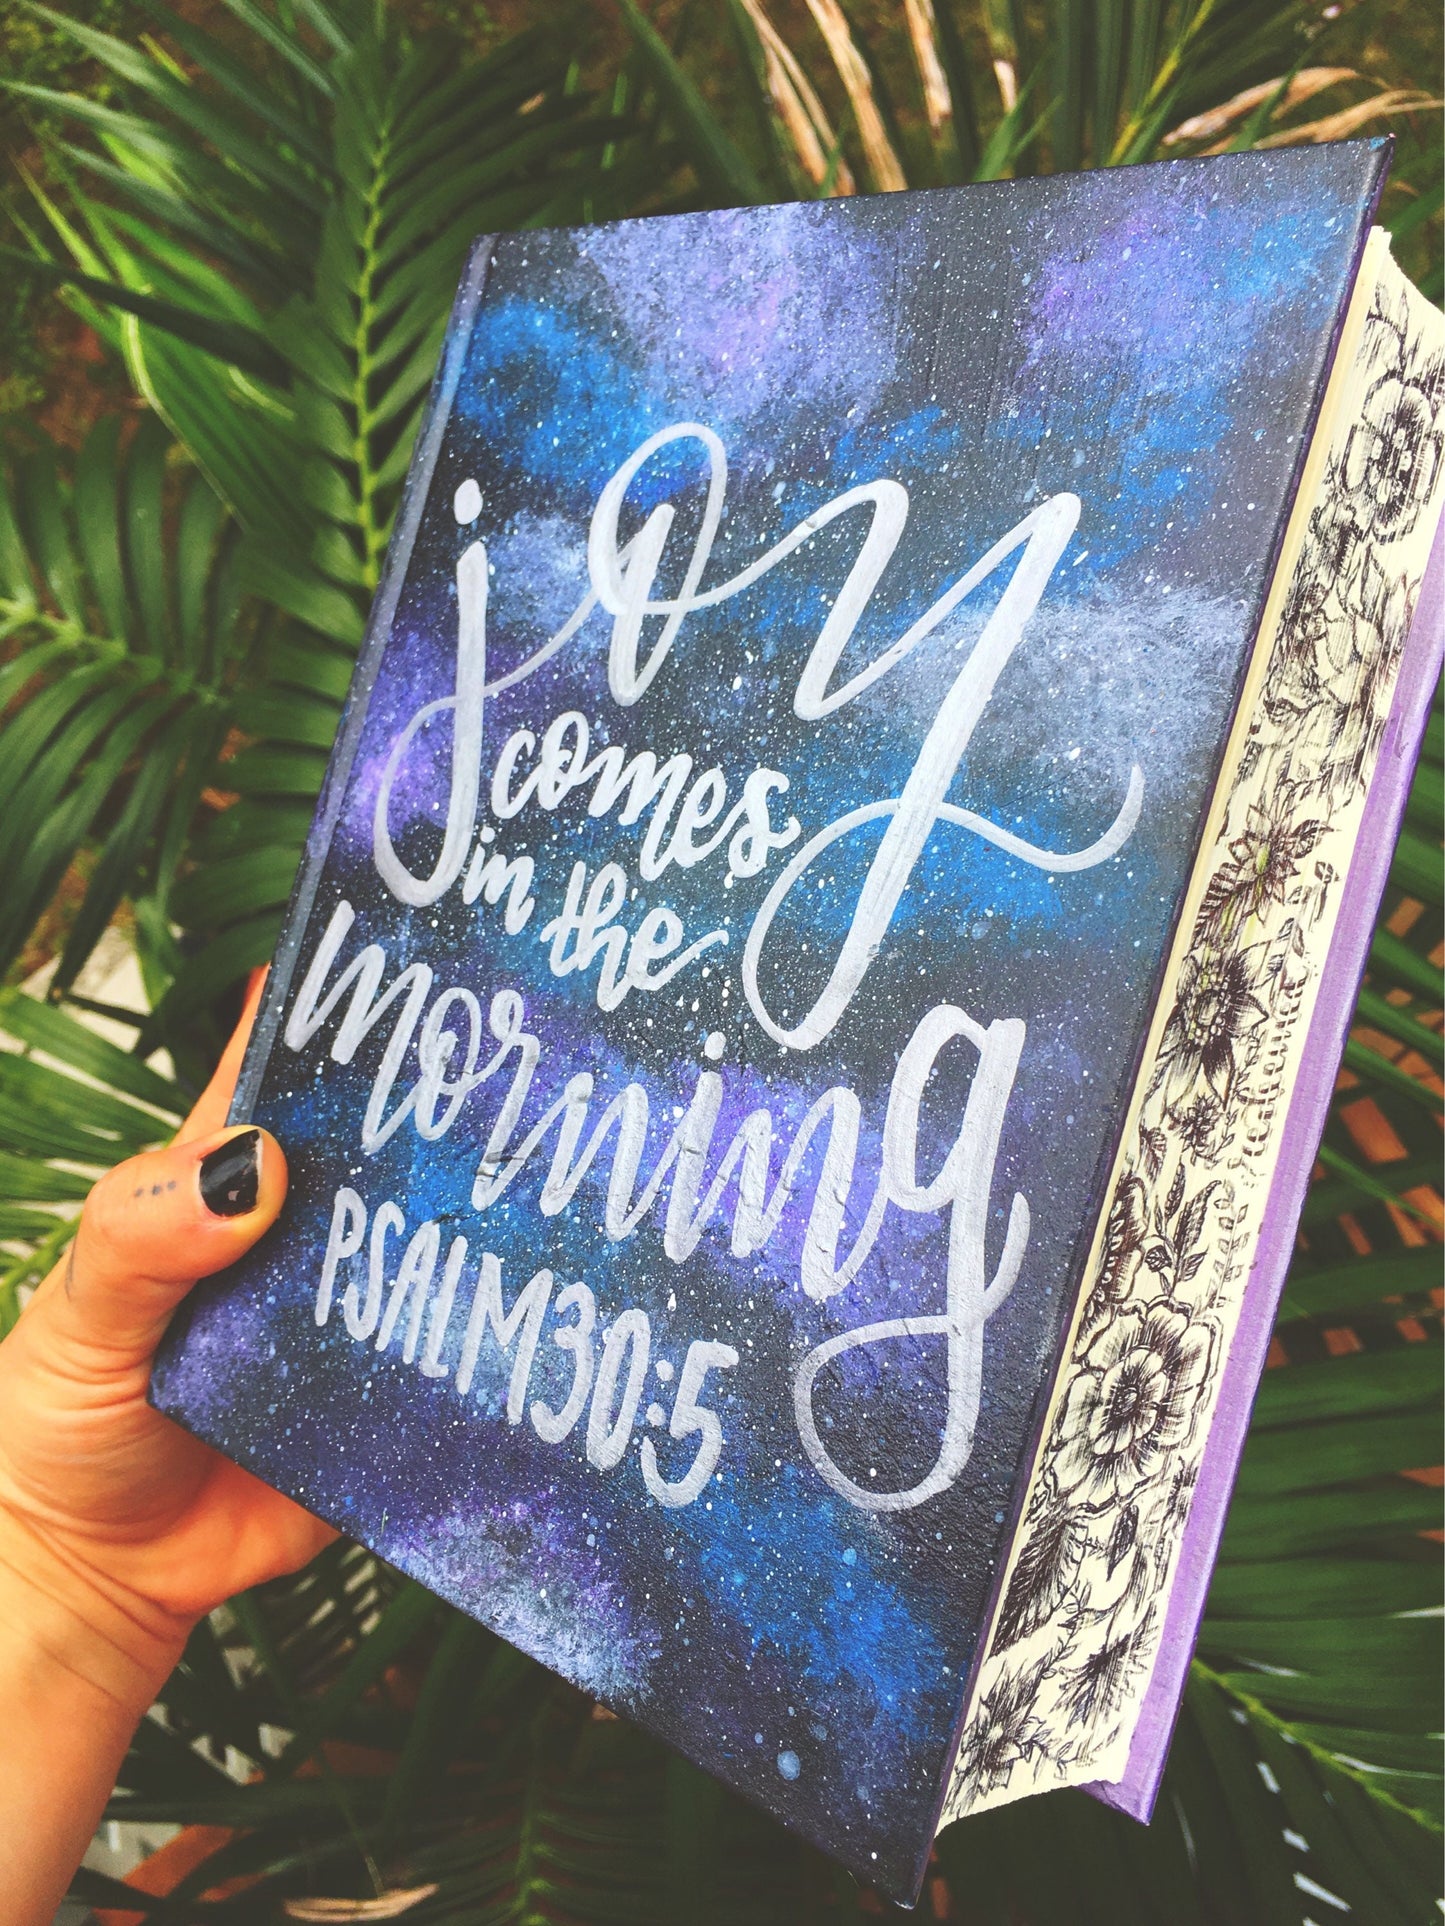 joy
comes
in the
morning
PSALM 30:5
redeemed